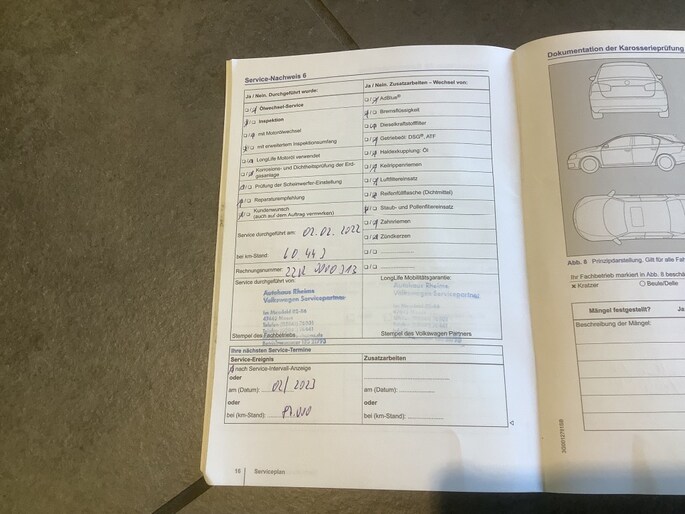 Service-Nachweis 6
Ja / Nein. Durchgeführt wurde:
Ölwechsel-Service
Inspektion
mit Motorölwechsel
mit erweitertem Inspektionsumfang
LongLife Motoröl verwendet
Korrosions- und Dichtheitsprüfung der Erdgasanlage
Prüfung der Scheinwerfer-Einstellung
Reparaturempfehlung
Kundenwunsch
(auch auf dem Auftrag vermerken)
Service durchgeführt am: 02.02.2022
bei km-Stand:
Rechnungsnummer:
Service durchgeführt von:
Autohaus Rheims
Volkswagen Servicepartner
Stempel des Fachbetriebs
Ja / Nein. Zusatzarbeiten – Wechsel von:
AdBlue®
Bremsflüssigkeit
Dieselkraftstofffilter
Getriebeöl: DSG®, ATF
Haldexkupplung: Öl
Keilrippenriemen
Luftfiltereinsatz
Reifenfüllflasche (Dichtmittel)
Staub- und Pollenfiltereinsatz
Zahnriemen
Zündkerzen
LongLife Mobilitätsgarantie:
Autohaus Rheims
Volkswagen Servicepartner
Stempel des Volkswagen Partners
Ihre nächsten Service-Termine
Service-Ereignis
nach Service-Intervall-Anzeige
oder
am (Datum): 02/2023
oder
bei (km-Stand):
Zusatzarbeiten
oder
am (Datum):
oder
bei (km-Stand):
16 Serviceplan
Dokumentation der Karosserieprüfung
Abb. 8 Prinzipdarstellung. Gilt für alle
Ihr Fachbetrieb markiert in Abb. 8
× Kratzer
Beule/Delle
Mängel festgestellt?
Beschreibung der Mängel: